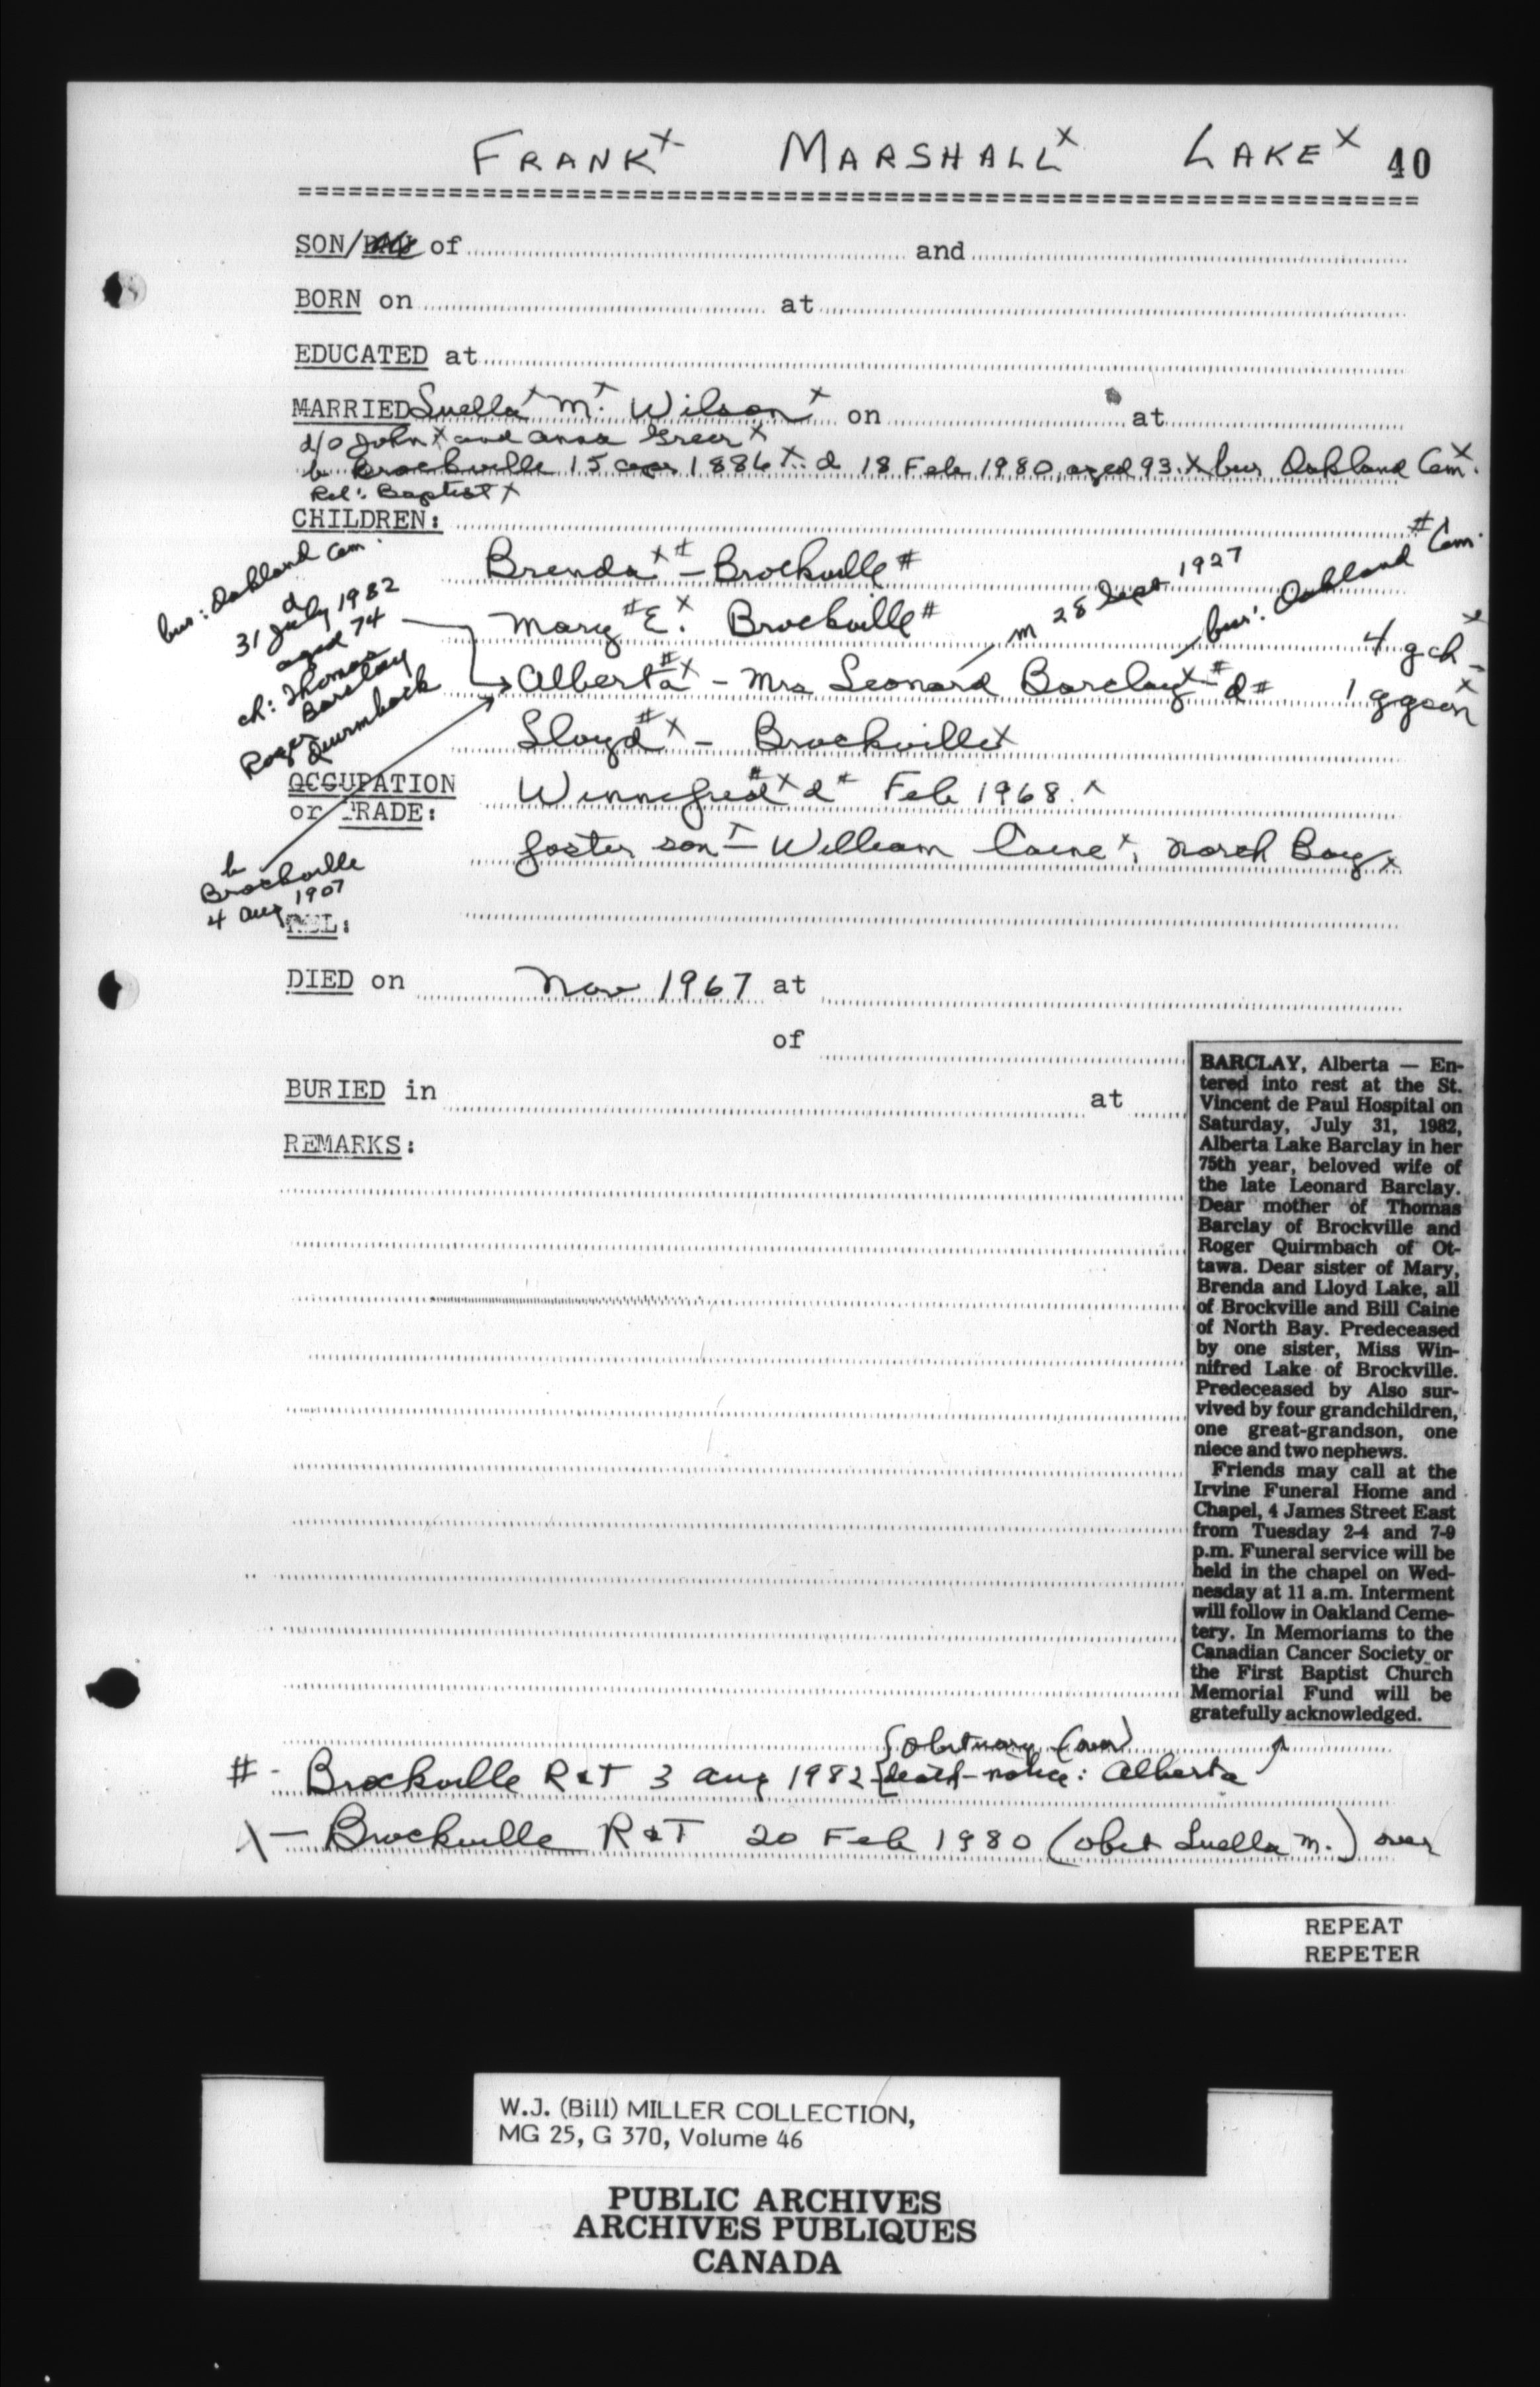 FRANK X MARSHALL X LAKE X 40
SON/ of and
BORN on at
EDUCATED at
MARRIED Luella X M. X Wilson X on at
d/o John X and Anna Greer X
b Brockville 15 Apr 1886 X. d 18 Feb 1980, aged 93. X bur Oakland Cem X.
Rel: Baptist X
CHILDREN:
bur: Oakland Cem.
d
31 July 1982
aged 74
ch: Thomas
Barclay
Roger
Quirmback
Brenda X # - Brockville #
Mary # E. X Brockville #
m 28 Sept 1927
bur: Oakland # Cem.
Alberta # X - Mrs Leonard Barclay X # d #
4 gch X
1 ggson X
Lloyd # X - Brockville X
OCCUPATION
or TRADE:
Winnefred # X d # Feb 1968. X
foster son X - William Caine X, North Bay X
b
Brockville
4 Aug 1907
REL:
DIED on Nov 1967 at
of
BURIED in at
REMARKS:
BARCLAY, Alberta — En-
tered into rest at the St.
Vincent de Paul Hospital on
Saturday, July 31, 1982,
Alberta Lake Barclay in her
75th year, beloved wife of
the late Leonard Barclay.
Dear mother of Thomas
Barclay of Brockville and
Roger Quirmbach of Ot-
tawa. Dear sister of Mary,
Brenda and Lloyd Lake, all
of Brockville and Bill Caine
of North Bay. Predeceased
by one sister, Miss Win-
nifred Lake of Brockville.
Predeceased by Also sur-
vived by four grandchildren,
one great-grandson, one
niece and two nephews.
Friends may call at the
Irvine Funeral Home and
Chapel, 4 James Street East
from Tuesday 2-4 and 7-9
p.m. Funeral service will be
held in the chapel on Wed-
nesday at 11 a.m. Interment
will follow in Oakland Ceme-
tery. In Memoriams to the
Canadian Cancer Society or
the First Baptist Church
Memorial Fund will be
gratefully acknowledged.
{obituary (over)
# - Brockville R&T 3 Aug 1982 {death-notice: Alberta
X - Brockville R&T 20 Feb 1980 (obit Luella M.) over
REPEAT
REPETER
W.J. (Bill) MILLER COLLECTION,
MG 25, G 370, Volume 46
PUBLIC ARCHIVES
ARCHIVES PUBLIQUES
CANADA